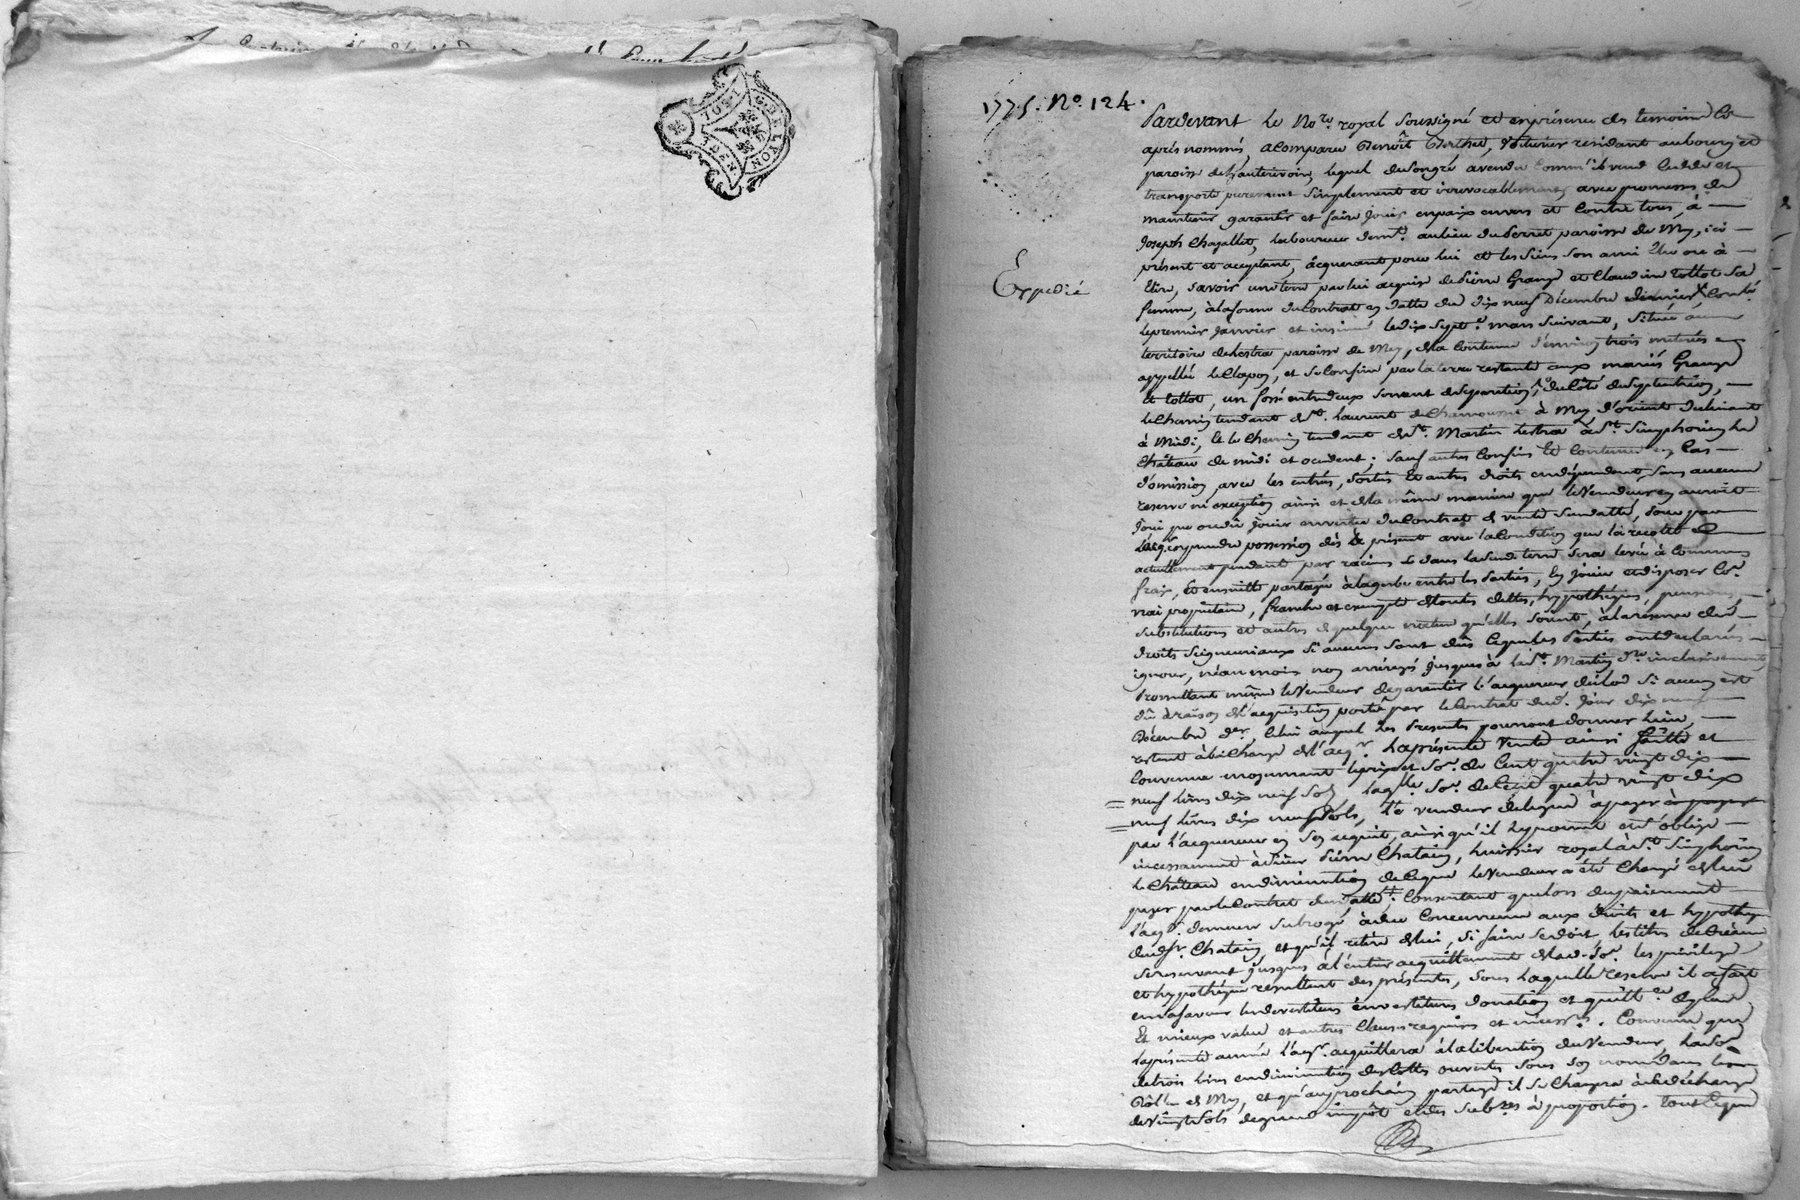 G. DE LYON
1775. No. 124.
Pardevant le No.re royal soussigné et en présence des temoins cy
après nommés, a comparu Benoît Berthet, Voiturier residant au bourg et
paroisse de hauterivoir, lequel de son gré a vendu comm'il vend cedde et
transporte purement simplement et irrevocablement, avec promesses de
maintenir garantir et faire jouir en paix envers et contre tous, à
Joseph Chazallet, laboureur demt. au lieu du Perret paroisse de Mey, ici
présent et acceptant, acquerant pour lui et les siens son ami élu ou à
Elire, savoir une terre par lui acquise de Pierre Grange et Claudine Tollot sa
femme, à la forme du contrat en datte du dix neuf Décembre dernier, Conlé.
le premier janvier et insinué le dix sept. mars suivant, située au
territoire de lestra paroisse de Mey, de la contenue d'environ trois meterés
appellée le Clapos, et se confine par la terre restante aux mariés Grange
et tollot, un fossé entredeux servant de separation, du côté du septentrion,
le Chemin tendant de St. Laurent de Chamousset à Mey d'orient declinant
à Midi, et le Chemin tendant de St. Martin lestra à St. Simphorien le
Château de midi et occident; sauf autres confins et contenue en cas
d'omission, avec les entrées, sorties et autres droits en dépendant, sans aucune
reserve ni exception ainsi et de la même manière que le Vendeur en auroit
joui pu ou dû jouir en vertu du contrat de vente susdatté, pour par
l'acq.r en prendre possession dès à présent avec la condition que la recolte
actuellement pendant par racines dans lad. terre sera levée à communs
frais, et ensuitte partagée à la gerbe entre les Parties, en jouir et disposer en
vrai propriétaire, franche et exempte de toutes dettes, hypothèques, pensions,
substitutions et autres de quelque nature qu'elles soient, à la reserve des
droits seigneuriaux si aucuns sont dûs ce que les Parties ont declaré
ignorer, néanmoins non arréragés jusques à la St. Martin dre. inclusivement
Promettant même le Vendeur de garantir l'acquereur du lod si aucun est
dû à raison de l'acquisition porté par le Contrat dud. jour dix neuf
Décembre der. Celui auquel les Presentes pourront donner lieu,
restant à la charge de l'acqr. La présente Vente ainsi faitte et
Convenue moyennant le prix et so. de Cent quatre vingt dix
neuf livres dix neuf sols, laqlle. so. de Cent quatre vingt dix
neuf livres dix neuf sols, le vendeur delegue à payer
par l'acquereur en son acquit, ainsi qu'il le promet et s'oblige
incessamment à Sieur Pierre Chatain, huissier royal à St. Simphorien
le Château en diminution de ce que le vendeur a été Chargé de lui
payer par le Contrat susdatté: Consentant que lors du paiement
l'acqr. demeure subrogé à due concurrence aux droits et hypothèq.
dud. Sr. Chatain, et qu'il retire de lui, si faire se doit, les titres de Créance
Se reservant jusques à l'entier acquittement de lad. so. les privilege
et hypothèque resultant des présentes, sous laquelle reserve il a fait
en sa faveur les devestitures investitures donation et quitt.ce de plus
Et mieux value et autres Clauses requises et necess.es. Convenu que
la présente année l'acqr. acquittera à la liberation du Vendeur, la so.
de trois livres en diminution des Cottes ouvertes sous son nom dans le
Rôlle de Mey, et qu'au prochain partage il se Chargera à la décharge
de vingt sols de grand impôt et des subres à proportion. Tout ce que
Expedié